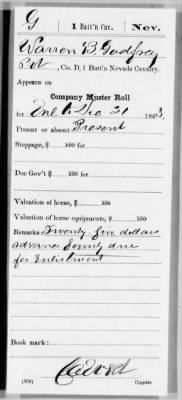 G | 1 Batt'n Cav. | Nev.
Warren B Godfrey
Pvt, Co. D, 1 Batt'n Nevada Cavalry.
Appears on
Company Muster Roll
for Dec 31, 1863.
Present or absent Present
Stoppage, $ 100 for
Due Gov't $ 100 for
Valuation of horse, $ 100
Valuation of horse equipments, $ 100
Remarks Twenty-five dollars
advance bounty due
for Enlistment
Book mark:
(358)
Copyist.